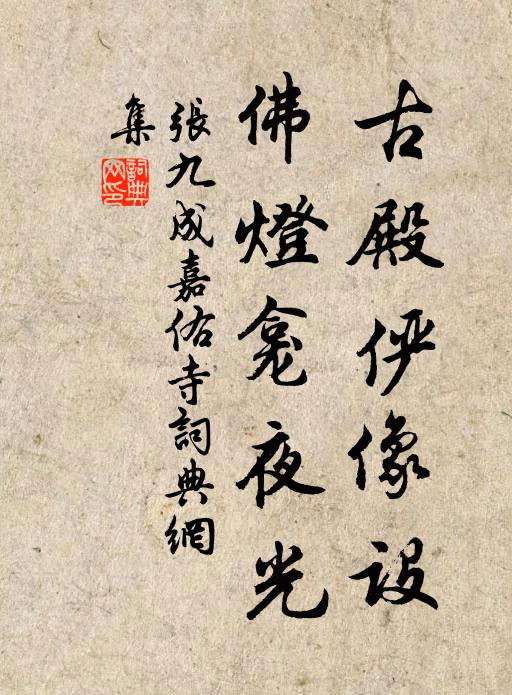 古殿俨像設
佛燈龛夜光
張九成嘉佑寺詞典網
集
詞典
网印